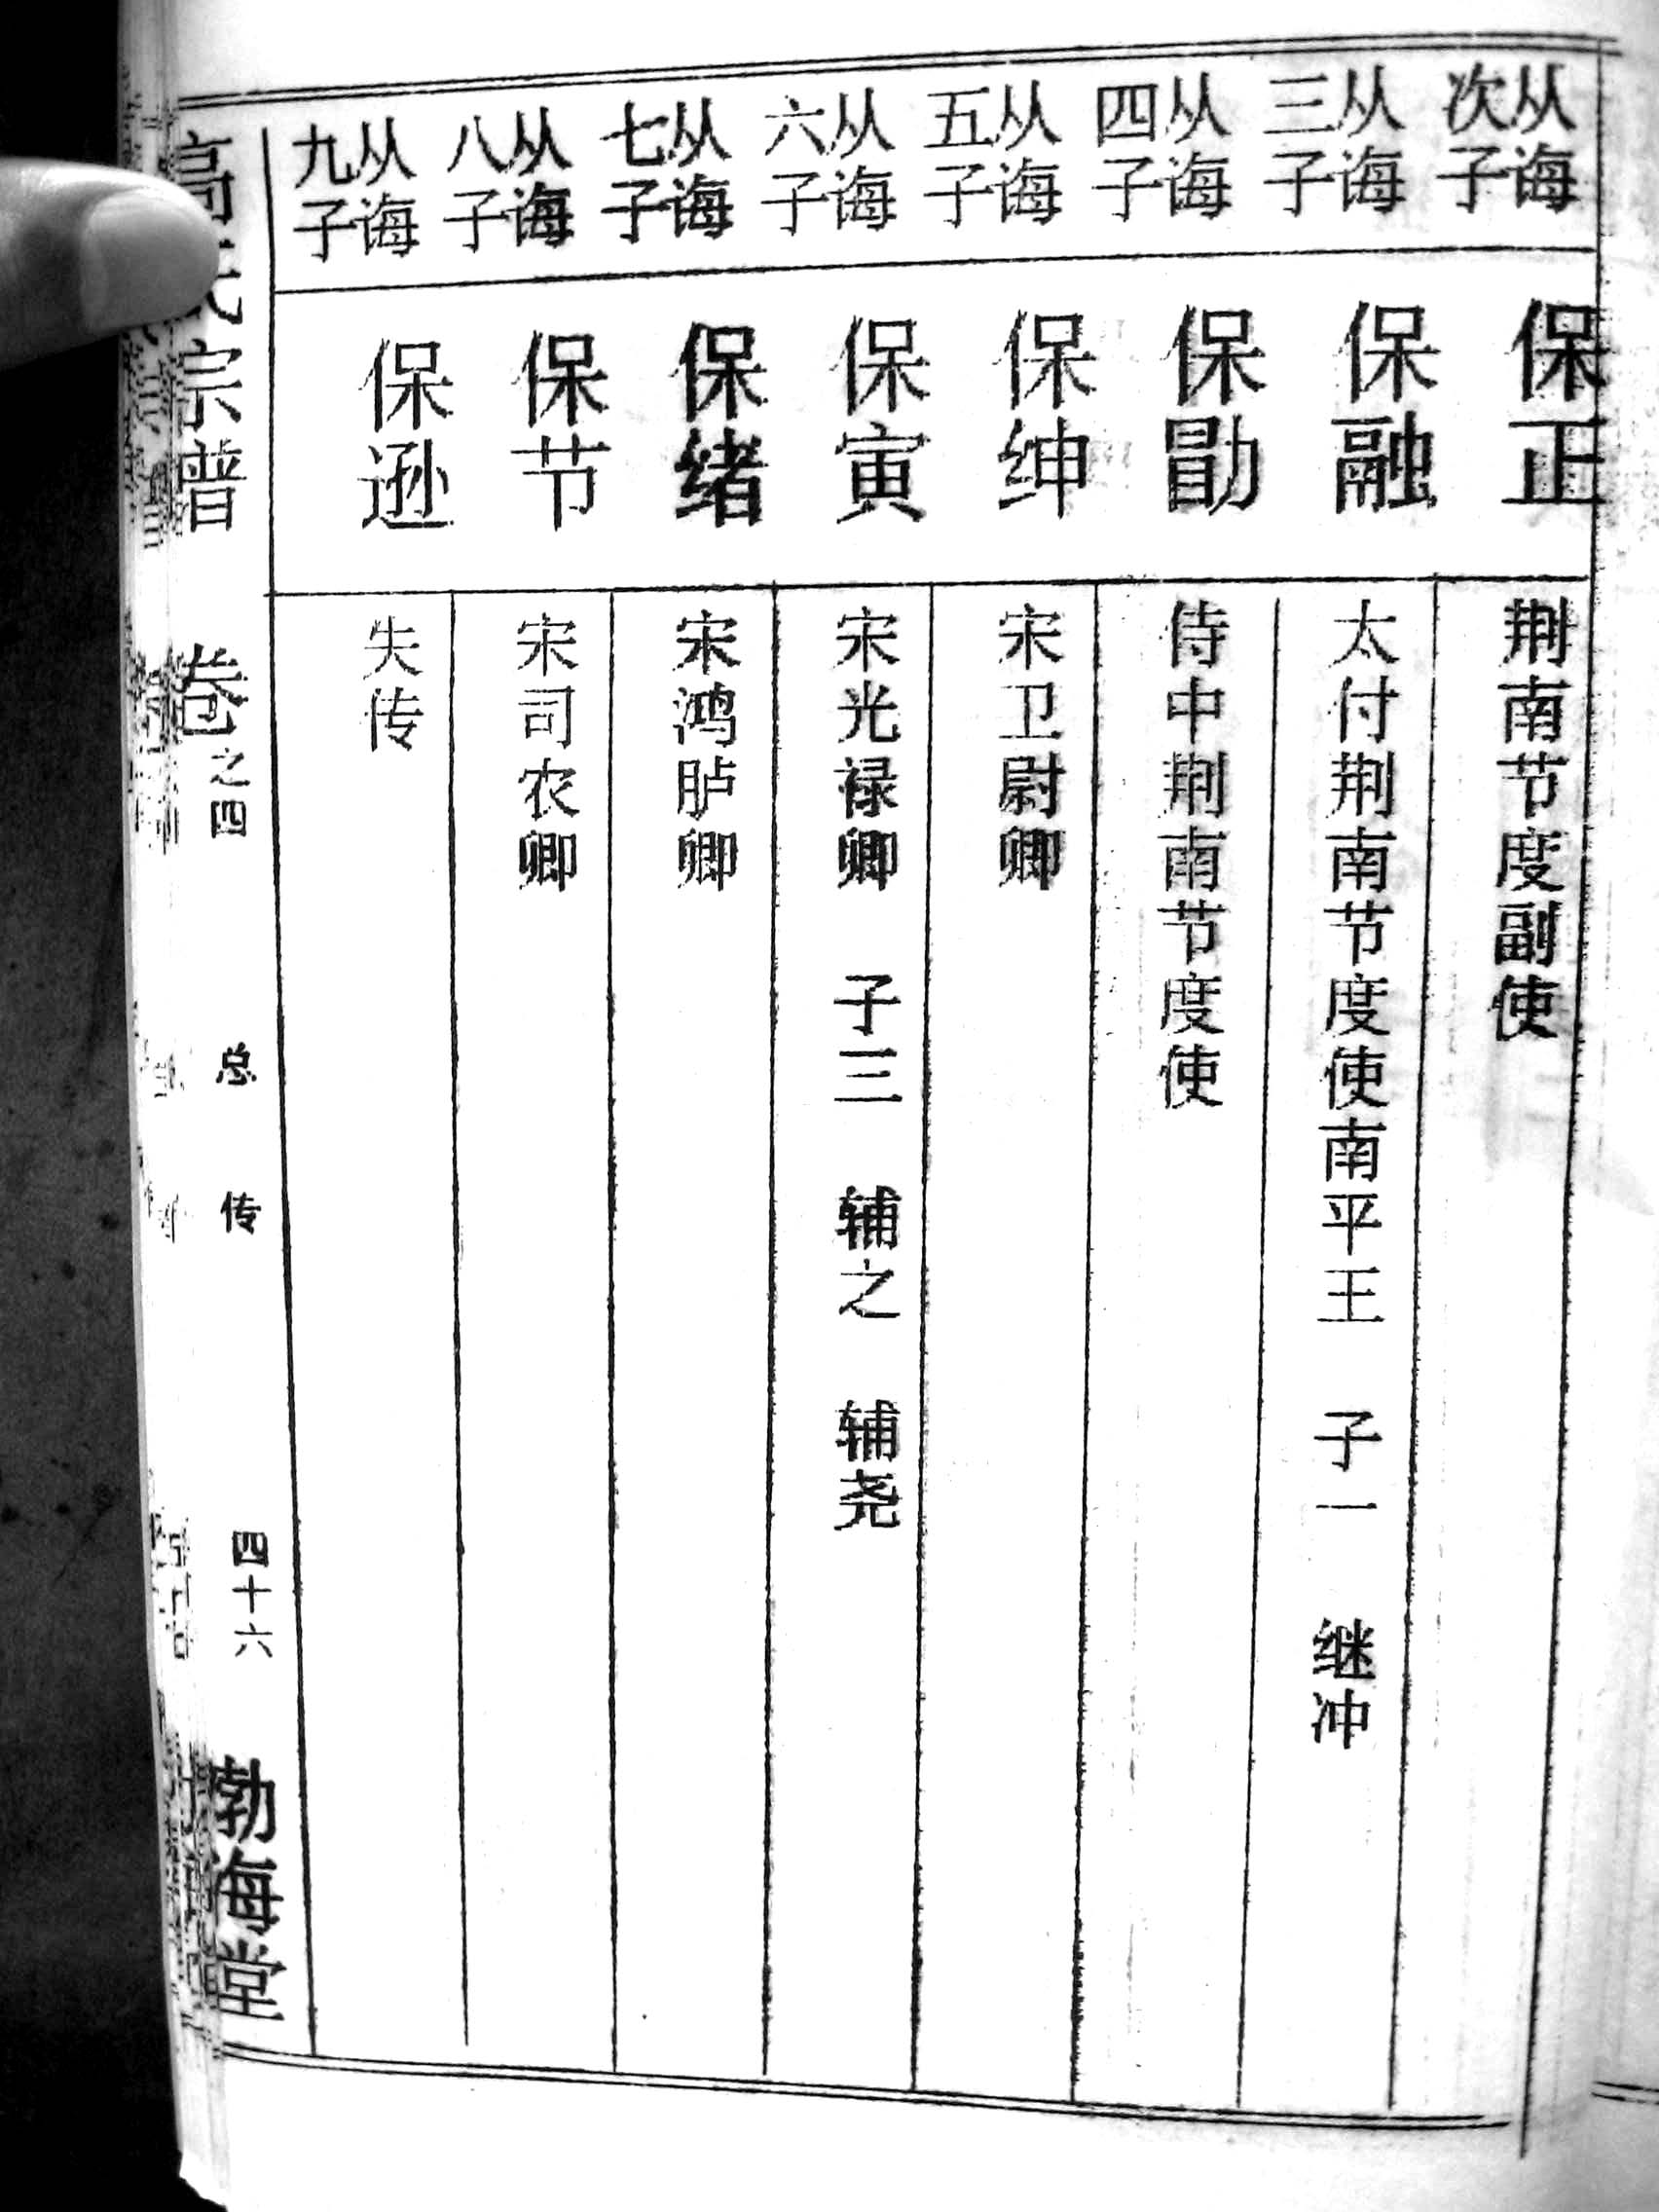 从诲
次子
保正
荆南节度副使
从诲
三子
保融
太付荆南节度使南平王 子一 继冲
从诲
四子
保勖
侍中荆南节度使
从诲
五子
保绅
宋卫尉卿
从诲
六子
保寅
宋光禄卿 子三 辅之 辅尧
从诲
七子
保绪
宋鸿胪卿
从诲
八子
保节
宋司农卿
从诲
九子
保逊
失传
高氏宗普 卷之四 总传 四十六 勃海堂